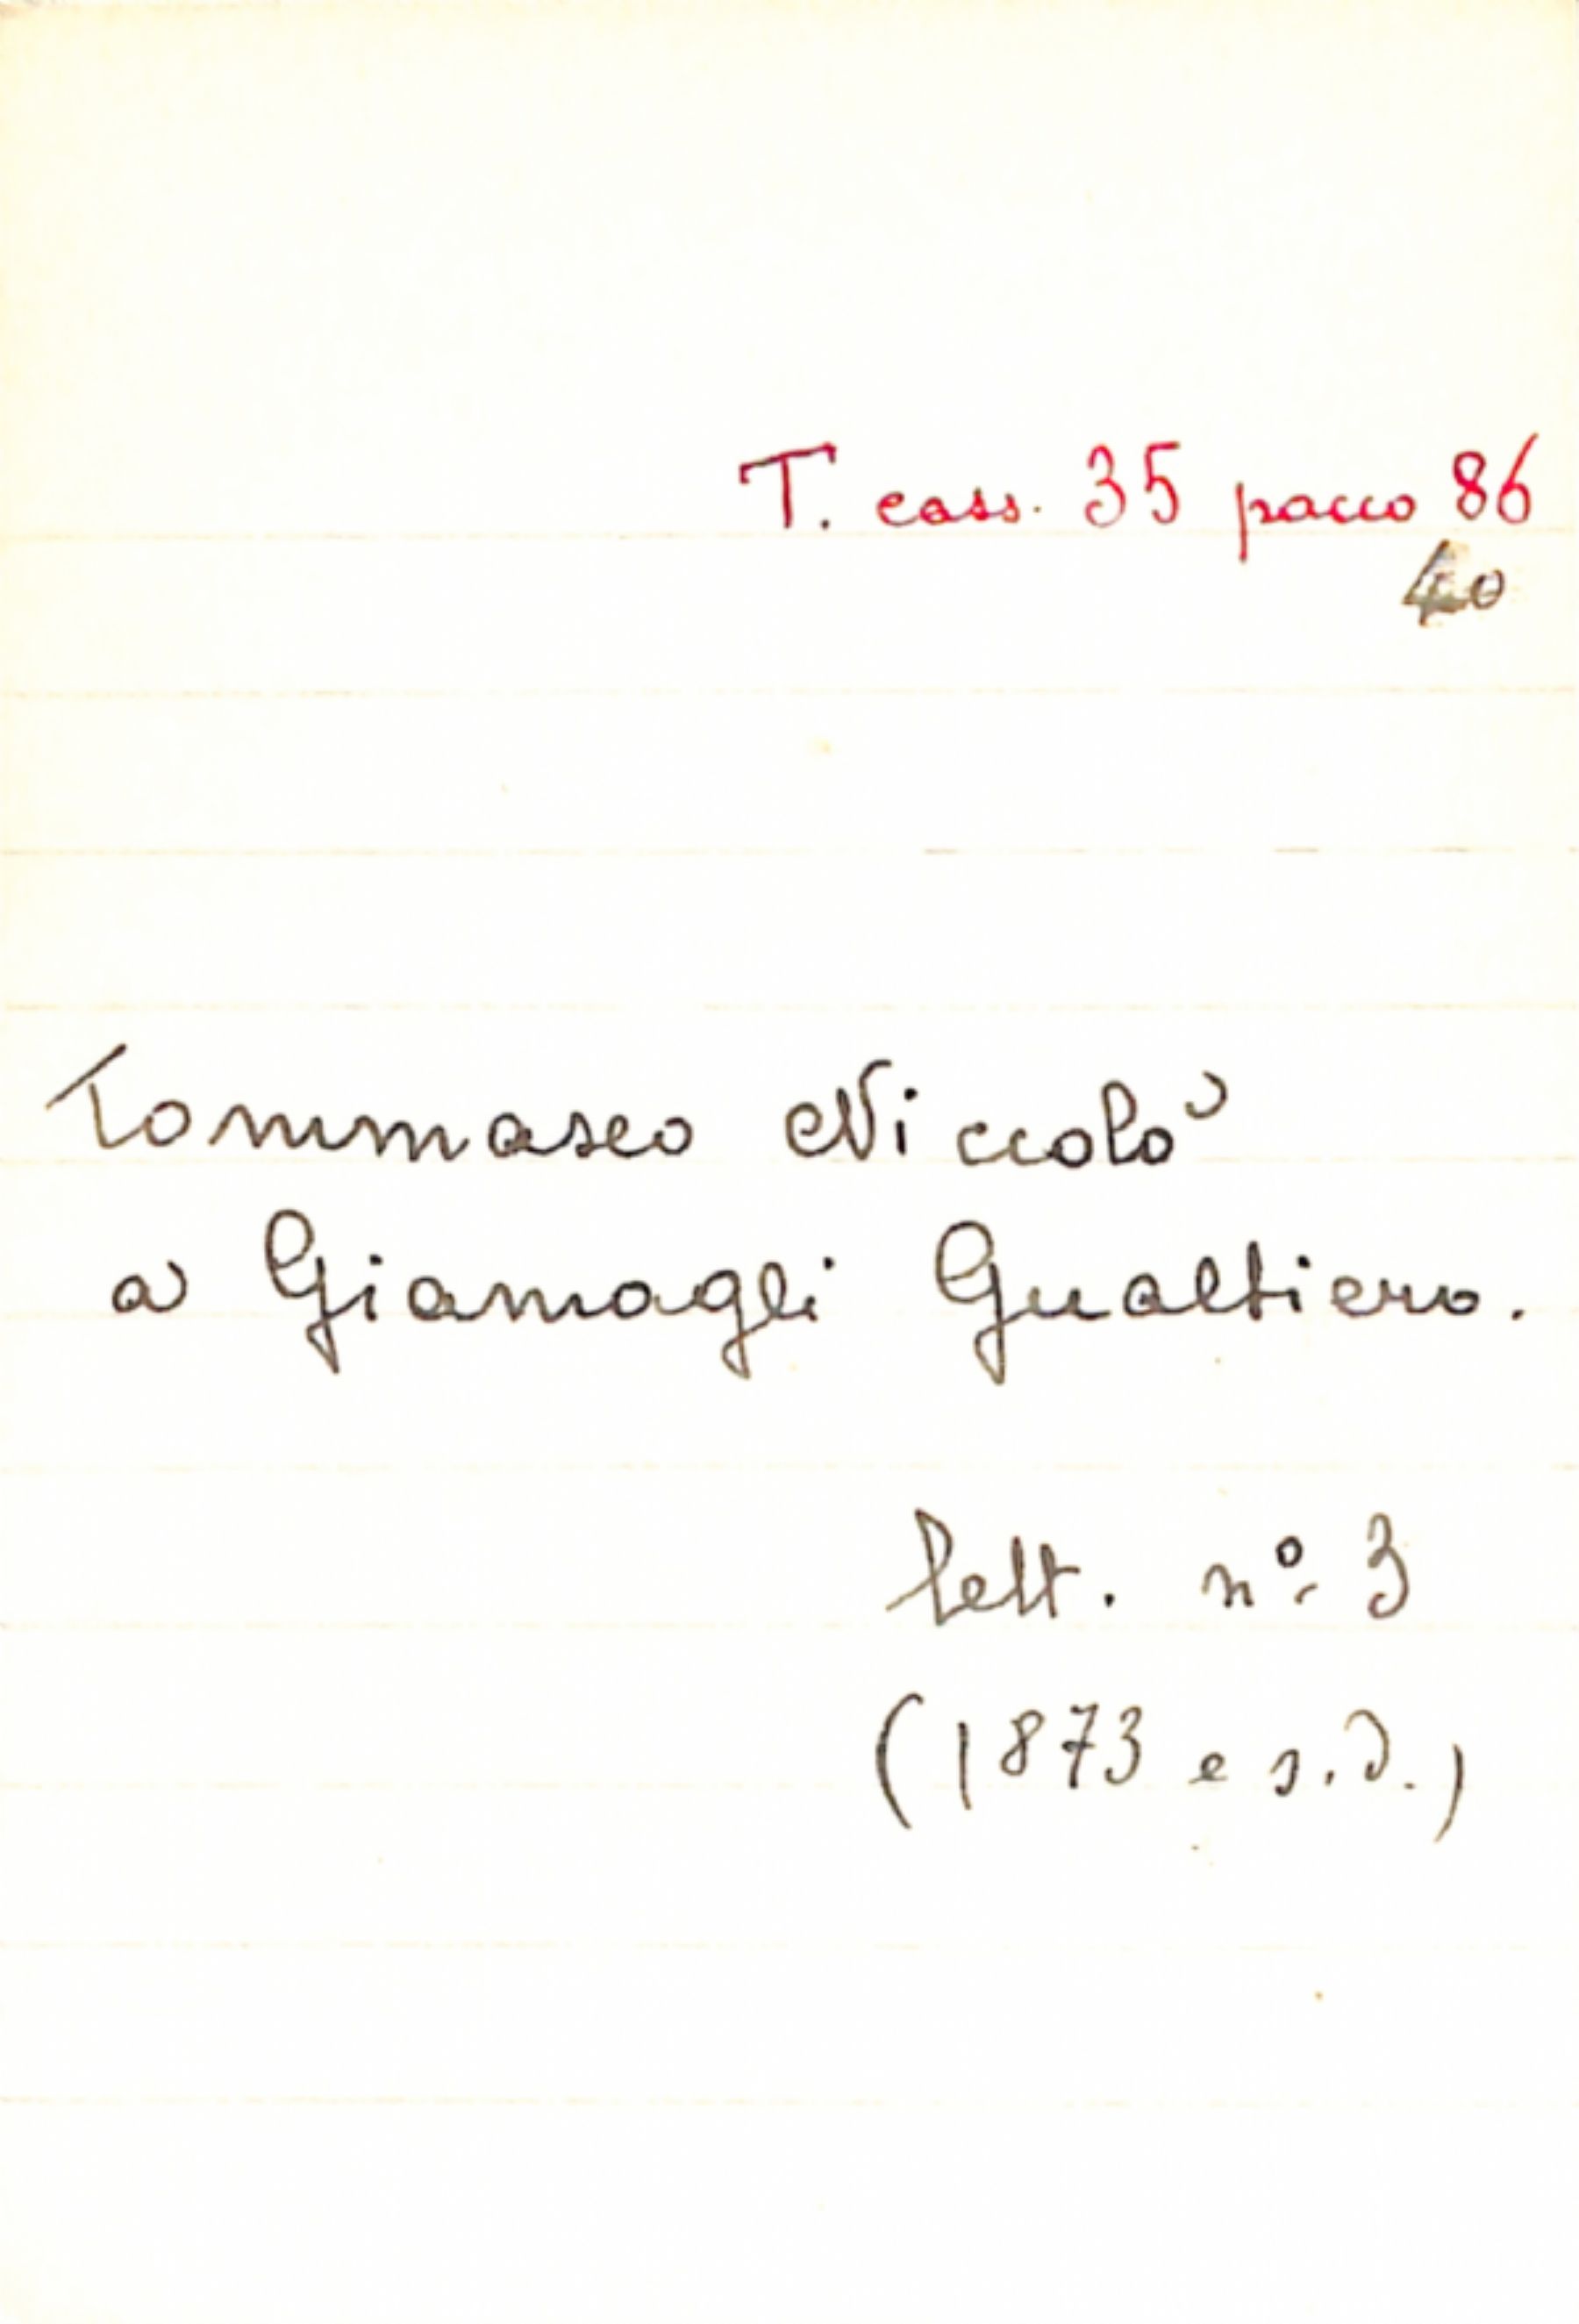 T. cass. 35 pacco 86
40
Tommaseo Niccolò
a Giamagli Gualtiero.
lett. nº 3
(1873 e s.d.)